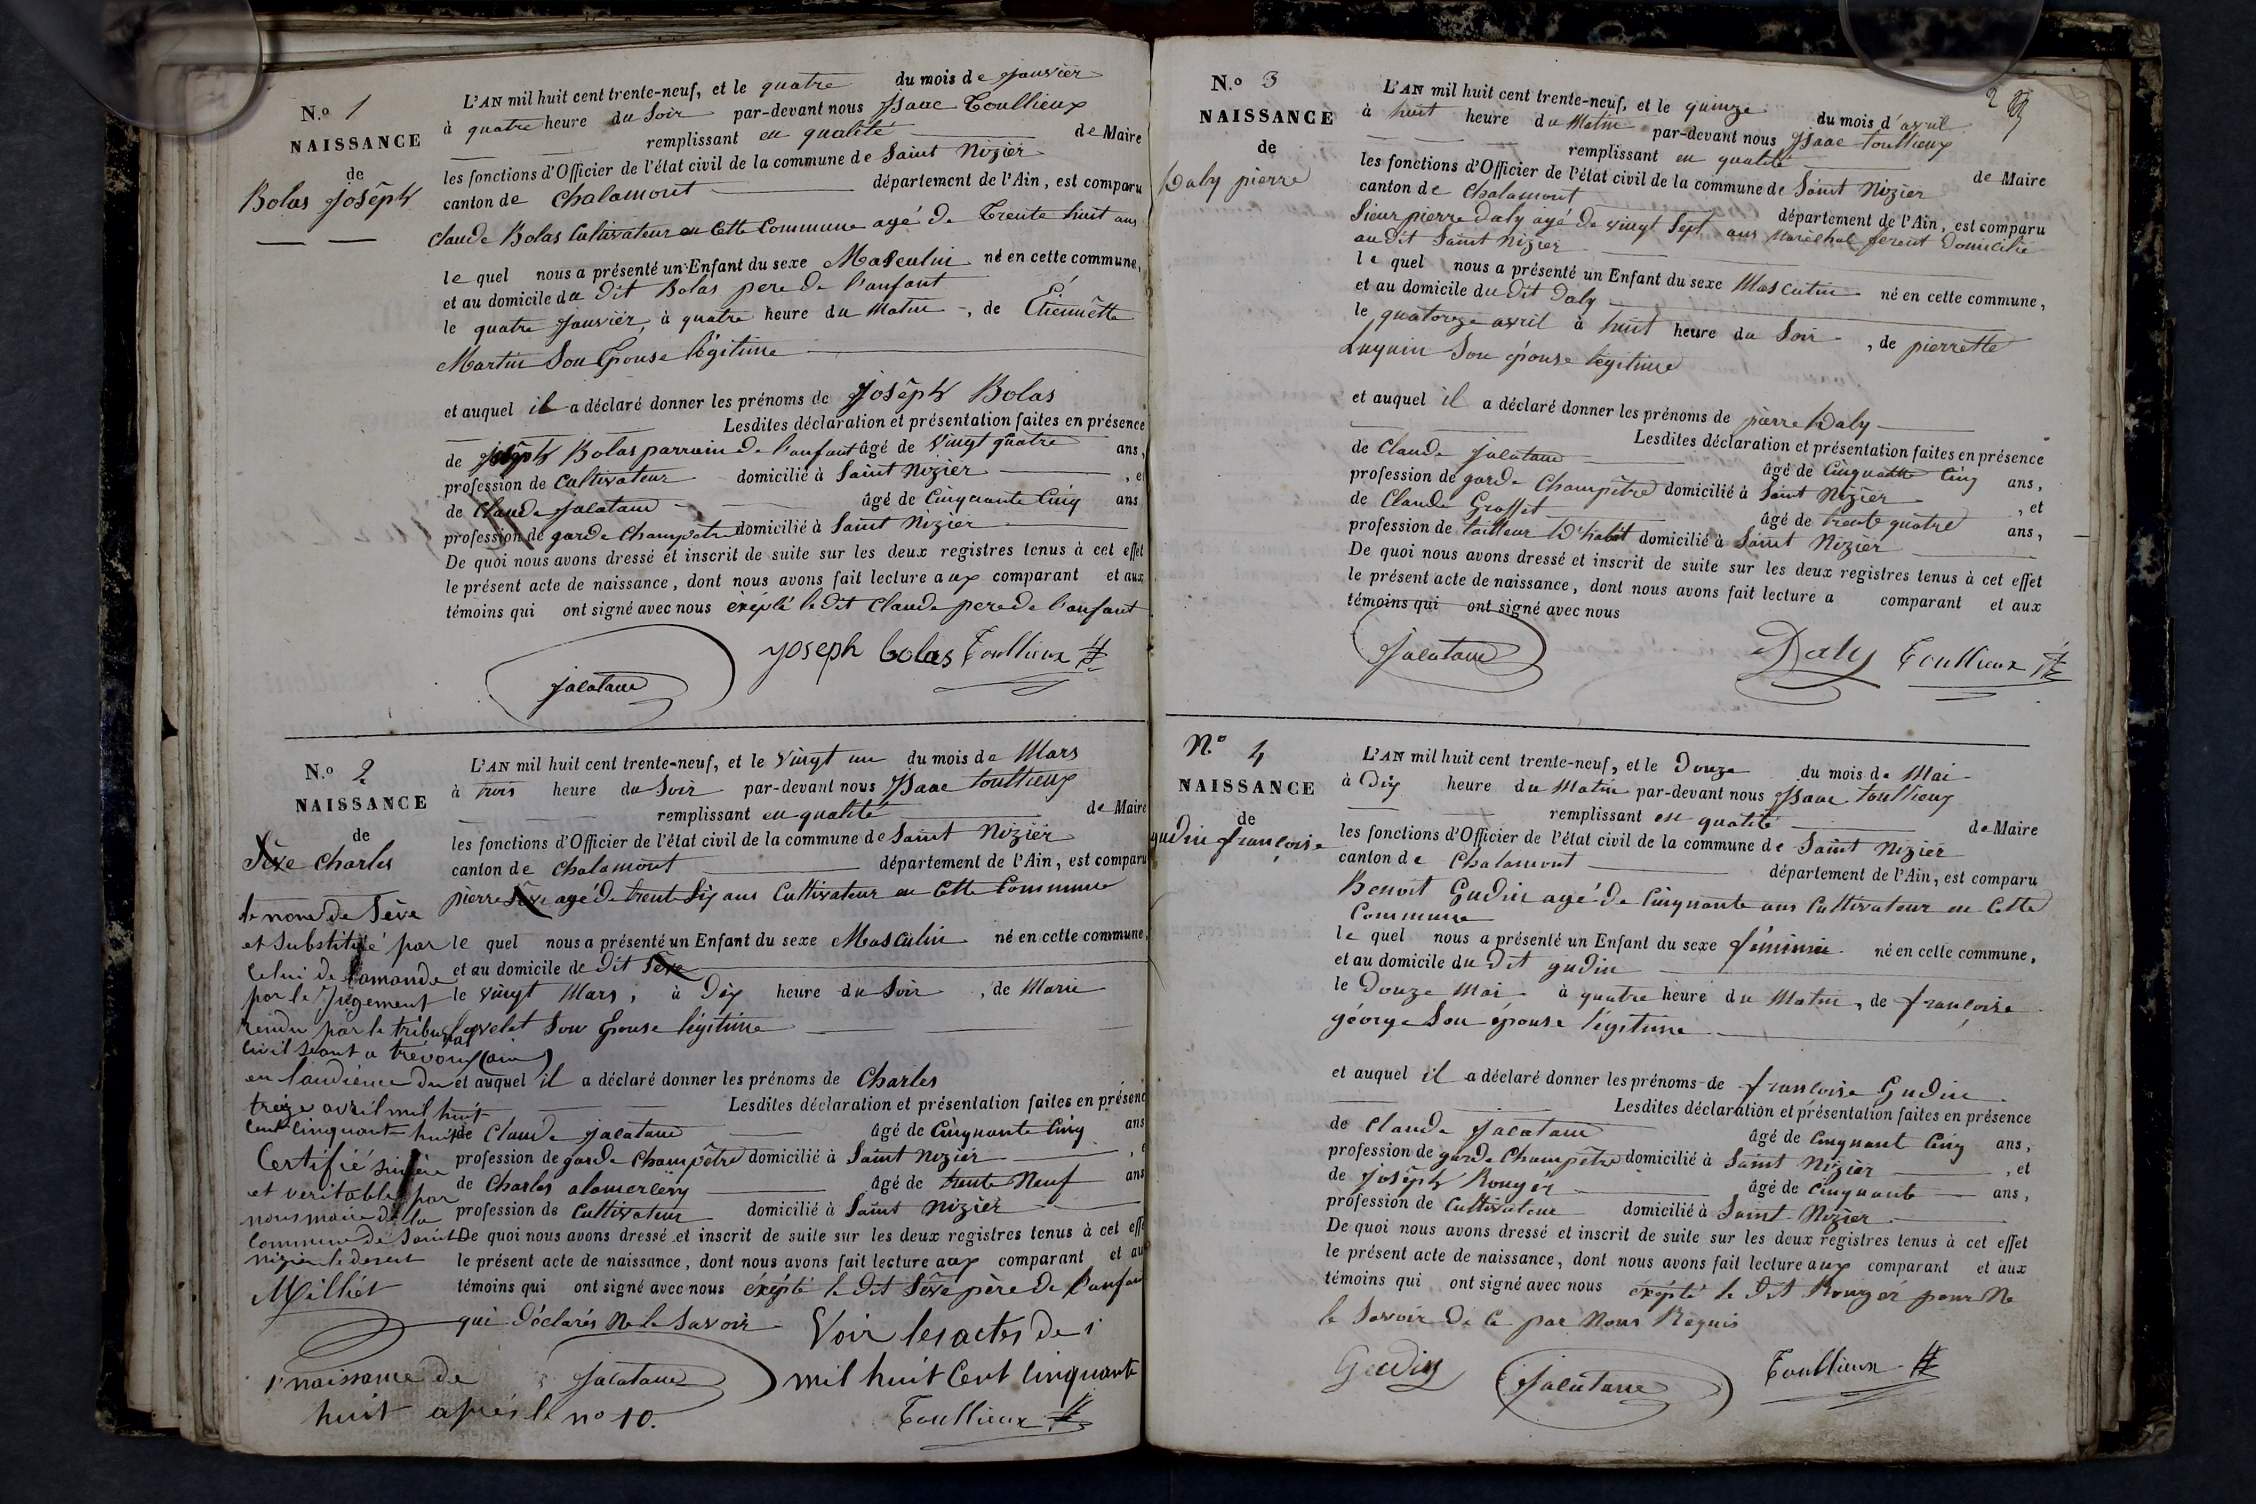 N.o 1
NAISSANCE
de
Bolas Joséph
L'AN mil huit cent trente-neuf, et le quatre du mois de Janvier
à quatre heure du Soir par-devant nous Isaac Toullieux
remplissant en qualité de Maire
les fonctions d'Officier de l'état civil de la commune de Saint Nizier
canton de Chalamont département de l'Ain, est comparu
Claude Bolas Cultivateur en Cette Commune agé de Trente huit ans
le quel nous a présenté un Enfant du sexe Masculin né en cette commune,
et au domicile du dit Bolas pere de l'anfant
le quatre Janvier, à quatre heure du Matin, de Étiennétte
Martin Son Épouse légitime
et auquel il a déclaré donner les prénoms de Joséph Bolas
Lesdites déclaration et présentation faites en présence
de Joséph Bolas parrain de l'anfant âgé de Vingt quatre ans,
profession de Cultivateur domicilié à Saint Nizier, et
de Claude Jacatane âgé de Cinquante Cinq ans
profession de garde Champétre domicilié à Saint Nizier
De quoi nous avons dressé et inscrit de suite sur les deux registres tenus à cet effet
le présent acte de naissance, dont nous avons fait lecture aux comparant et aux
témoins qui ont signé avec nous éxépté le dit Claude pere de l'anfant
Joseph bolas Toullieux
Jacatane
N.o 2
NAISSANCE
de
Séve Charles
L'AN mil huit cent trente-neuf, et le Vingt un du mois de Mars
à trois heure du Soir par-devant nous Isaac Toullieux
remplissant en qualité de Maire
les fonctions d'Officier de l'état civil de la commune de Saint Nizier
canton de Chalamont département de l'Ain, est comparu
pierre Séve agé de trente Six ans Cultivateur en Cette Commune
le quel nous a présenté un Enfant du sexe Masculin né en cette commune,
et au domicile de dit Séve
le vingt Mars, à Dix heure du Soir, de Marie
Son Épouse légitime
et auquel il a déclaré donner les prénoms de Charles
Lesdites déclaration et présentation faites en présence
de Claude Jacatane âgé de Cinquante Cinq ans
profession de garde Champêtre domicilié à Saint Nizier, e
de Charles âgé de trente Neuf ans
profession de Cultivateur domicilié à Saint Nizier
De quoi nous avons dressé et inscrit de suite sur les deux registres tenus à cet effe
le présent acte de naissance, dont nous avons fait lecture aux comparant et au
témoins qui ont signé avec nous éxépté le dit Séve père de l'anfan
qui déclarés Ne le Savoir
le nom de Sève
et substitué par
celui de Lamande
par le Jugement
rendu par le tribunal
civil séant a trevoux (ain)
en l'audience du
treize avril mil huit
cent cinquante huit
Certifié sincère
et veritable par
nous maire de la
commune de Saint
nizier le desert
Milliet
Voir les actes de
naissance de mil huit Cent cinquante
huit après le no 10.
Jacatane
Toullieux
2
N.o 3
NAISSANCE
de
Daly pierre
L'AN mil huit cent trente-neuf, et le quinze du mois d'avril
à huit heure du Matin par-devant nous Isaac Toullieux
remplissant en qualité de Maire
les fonctions d'Officier de l'état civil de la commune de Saint Nizier
canton de Chalamont département de l'Ain, est comparu
Sieur pierre daly agé de vingt Sept ans Maréchal ferent Domicilié
au dit Saint Nizier
le quel nous a présenté un Enfant du sexe Masculin né en cette commune,
et au domicile du dit Daly
le quatorze avril à huit heure du Soir, de pierrette
Luquin Son épouse légitime
et auquel il a déclaré donner les prénoms de pierre Daly
Lesdites déclaration et présentation faites en présence
de Claude Jacatane âgé de Cinquante Cinq ans,
profession de garde Champêtre domicilié à Saint Nizier, et
de Claude Grosset âgé de trente quatre ans,
profession de tailleur D'habit domicilié à Saint Nizier
De quoi nous avons dressé et inscrit de suite sur les deux registres tenus à cet effet
le présent acte de naissance, dont nous avons fait lecture a comparant et aux
témoins qui ont signé avec nous
Jacatane Daly Toullieux
N.o 4
NAISSANCE
de
gudin françoise
L'AN mil huit cent trente-neuf, et le Douze du mois de Mai
à Dix heure du Matin par-devant nous Isaac Toullieux
remplissant en qualité de Maire
les fonctions d'Officier de l'état civil de la commune de Saint Nizier
canton de Chalamont département de l'Ain, est comparu
Benoit Gudin agé de Cinquante ans Cultivateur en Cette
Commune
le quel nous a présenté un Enfant du sexe féminin né en cette commune,
et au domicile du dit gudin
le Douze Mai à quatre heure du Matin, de françoise
géorge Son épouse légitime
et auquel il a déclaré donner les prénoms de françoise Gudin
Lesdites déclaration et présentation faites en présence
de Claude Jacatane âgé de Cinquant Cinq ans,
profession de garde Champetre domicilié à Saint Nizier, et
de Joséph Rougér âgé de Cinquante ans,
profession de Cultivateur domicilié à Saint Nizier
De quoi nous avons dressé et inscrit de suite sur les deux registres tenus à cet effet
le présent acte de naissance, dont nous avons fait lecture aux comparant et aux
témoins qui ont signé avec nous éxépté le Dit Rougér pour Ne
le Savoir de Ce par Nous Requis
Gudin Jacatane Toullieux